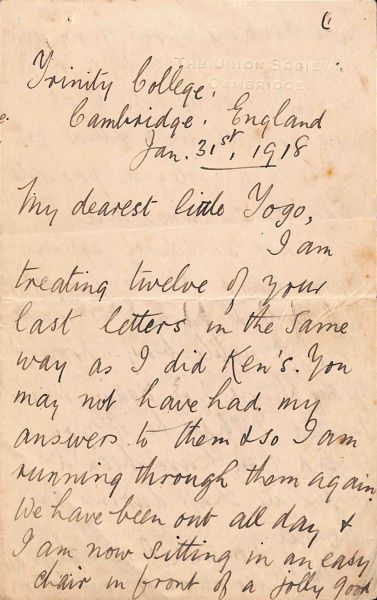 6
THE UNION SOCIETY
CAMBRIDGE.
Trinity College.
Cambridge. England
Jan. 31st, 1918
My dearest little Togo,
I am
treating twelve of your
last letters in the same
way as I did Ken's. You
may not have had my
answers to them & so I am
running through them again
We have been out all day &
I am now sitting in an easy
chair in front of a jolly good